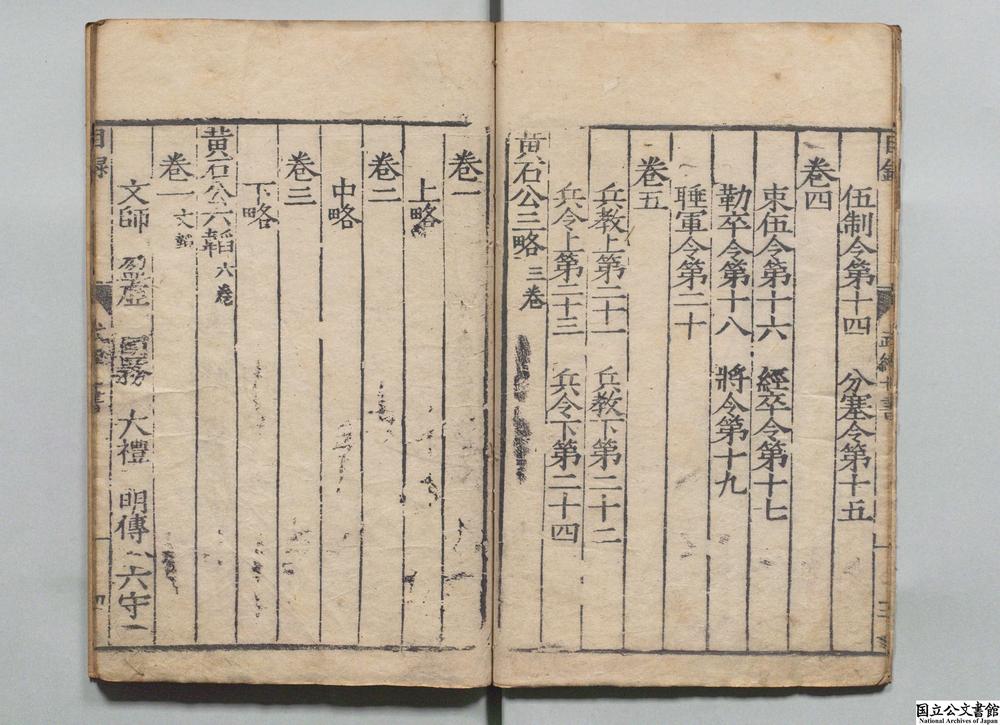 伍制令第十四 分塞令第十五
卷四
束伍令第十六 經卒令第十七
勒卒令第十八 將令第十九
踵軍令第二十
卷五
兵教上第二十一 兵教下第二十二
兵令上第二十三 兵令下第二十四
黃石公三略 三卷
卷一
上略
卷二
中略
卷三
下略
黃石公六韜 六卷
卷一 文韜
文師 盈虛 國務 大禮 明傳 六守
目錄
国立公文書館
National Archives of Japan